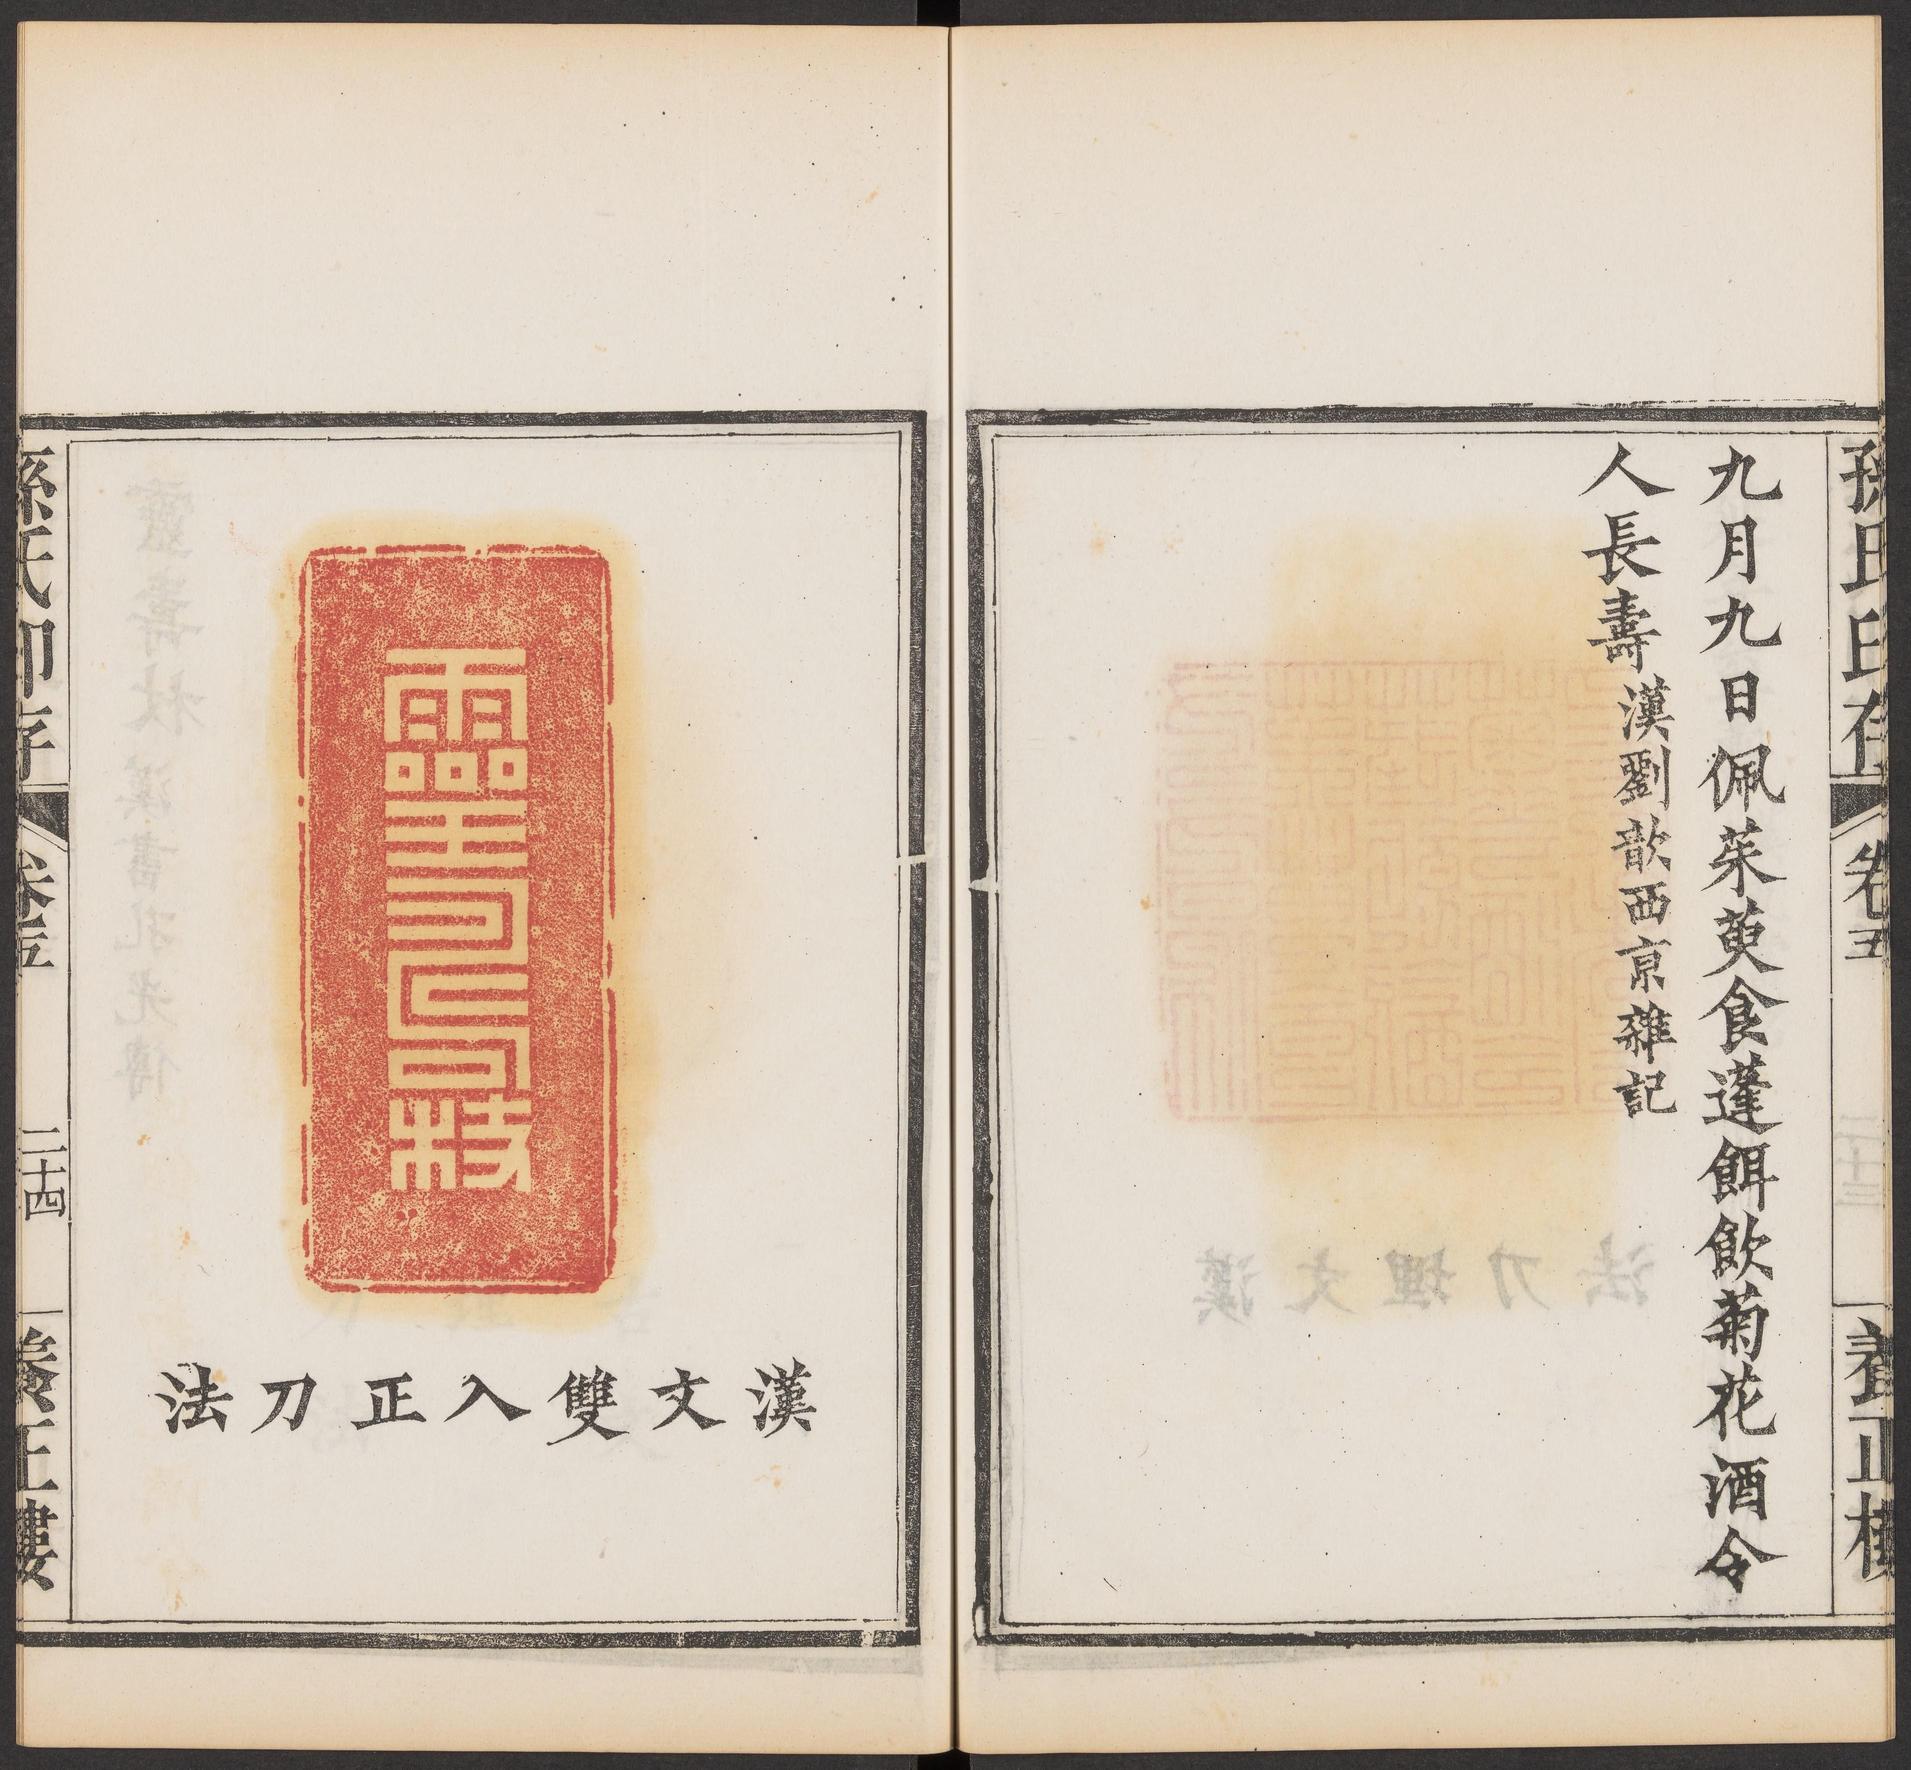 孫氏印存 卷五 養正樓
九月九日佩茱萸食蓬餌飲菊花酒令
人長壽 漢劉歆西京雜記
靈壽杖
漢文雙入正刀法
孫氏印存 卷五 二十四 養正樓